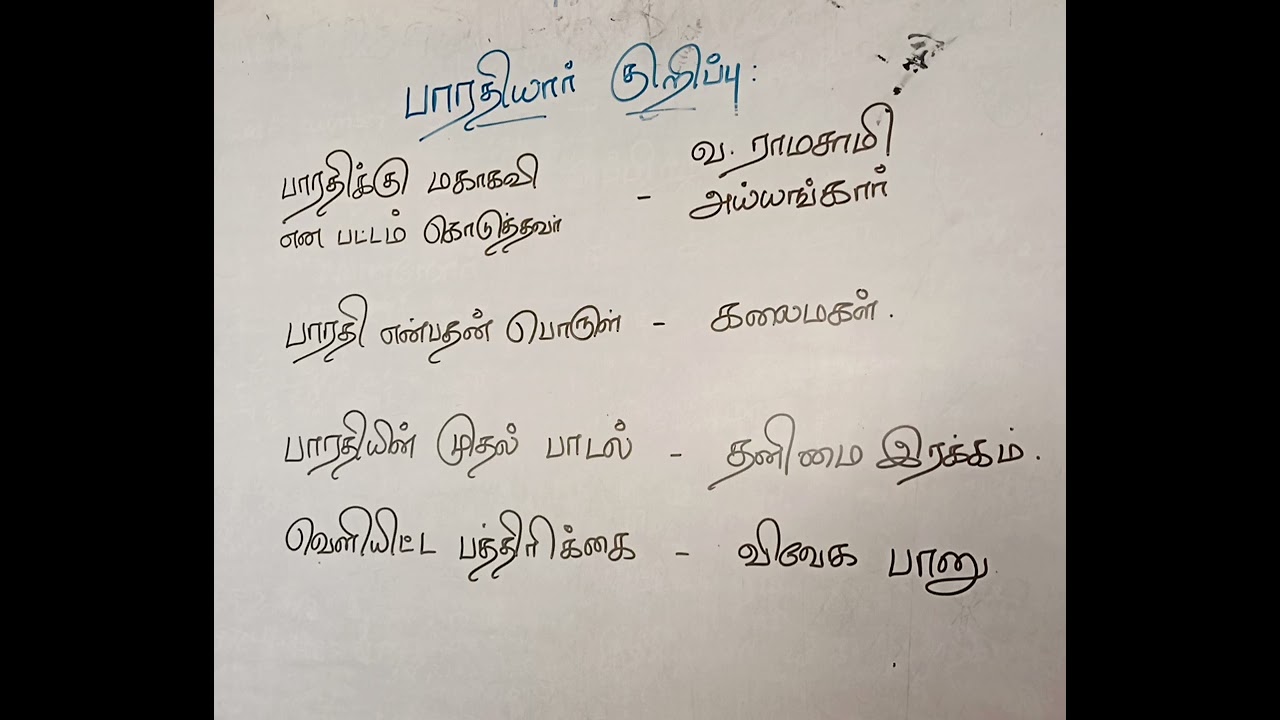 பாரதியார் குறிப்பு:
பாரதிக்கு மகாகவி
என பட்டம் கொடுத்தவர் - வ. ராமசாமி
அய்யங்கார்
பாரதி என்பதன் பொருள் - கலைமகள்.
பாரதியின் முதல் பாடல் - தனிமை இரக்கம்.
வெளியிட்ட பத்திரிக்கை - விவேக பானு